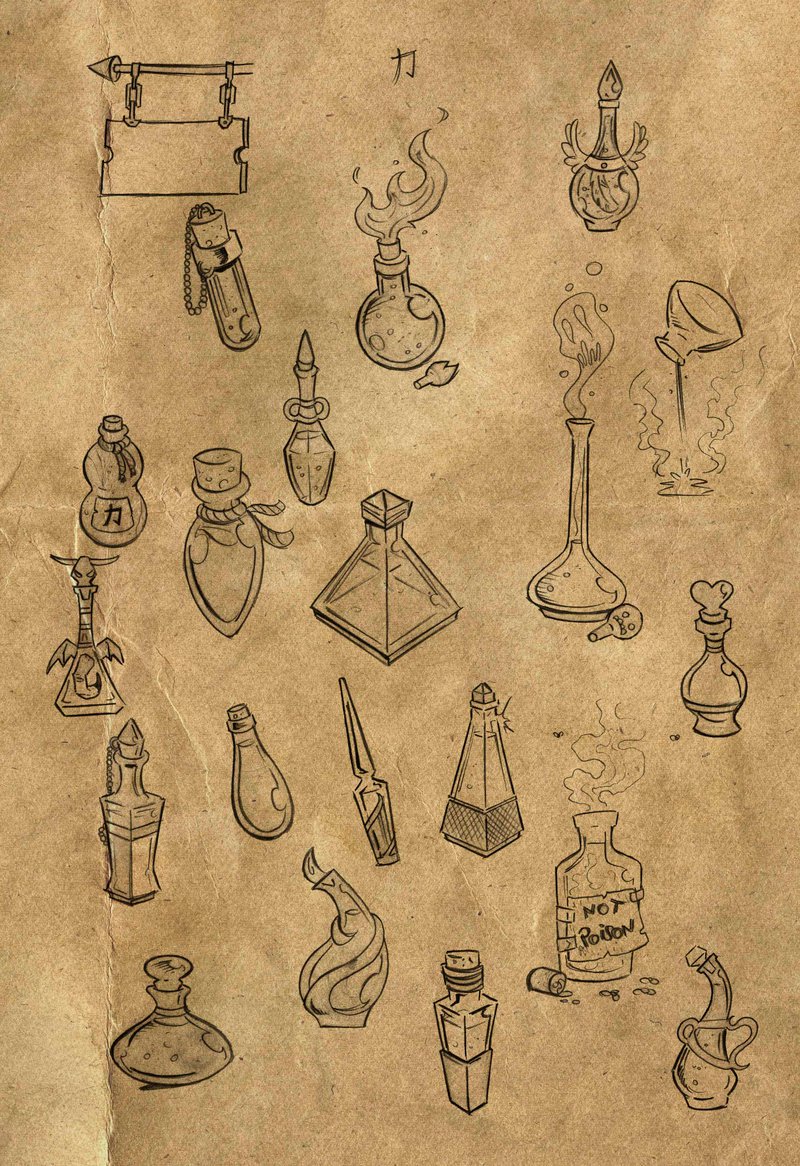 力
力
NOT
POISON